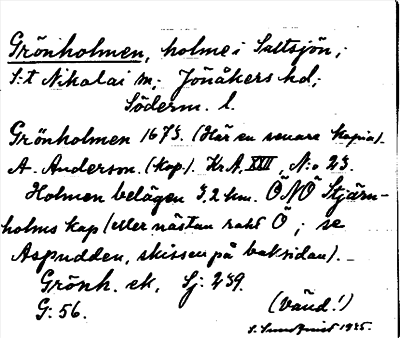 Grönholmen, holme i Saltsjön,;
S:t Nikolai sn; Jönåkers hd;
Söderm. l.
Grönholmen 1673. (Här en senare kopia).
A. Anderson. (kop). Kr.A. XXII, N:o 23.
Holmen belägen 3,2 km. ÖNÖ Stjärn-
holms kap (eller nästan rakt Ö; se
Aspudden, skissen på baksidan). –
Grönh. ek, Sj: 239.
G: 56.
(Vänd!)
S. Sundqvist 1925.